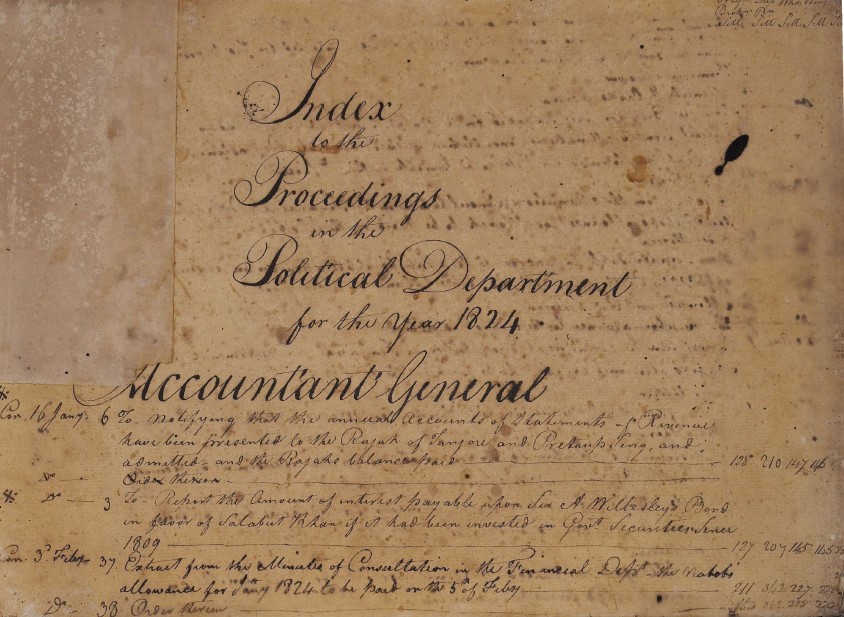 Sill, Sill Sill. Sill
Index
to the
Proceedings
in the
Political Department
for the Year 1824
Accountant General
Con. 16 Jany. 6 To Notifying that the annual Accounts of Statements of Revenue
have been presented to the Rajah of Tanjore and Pretaup Sing, and
admitted and the Rajahs balance paid 128 210 147 146
Do Order thereon
Do 3 To Report the Amount of interest payable upon Sir A Wellesley's Bond
in favor of Salabut Khan if it had been invested in Govt Securities Since
1809 127 207 145 145
Con 3d Feby 37 Extract from the Minutes of Consultation in the Financial Dept the Nabobs
allowance for Jany 1824 to be paid on the 5th of Feby 211 342 227
Do 38 Order thereon